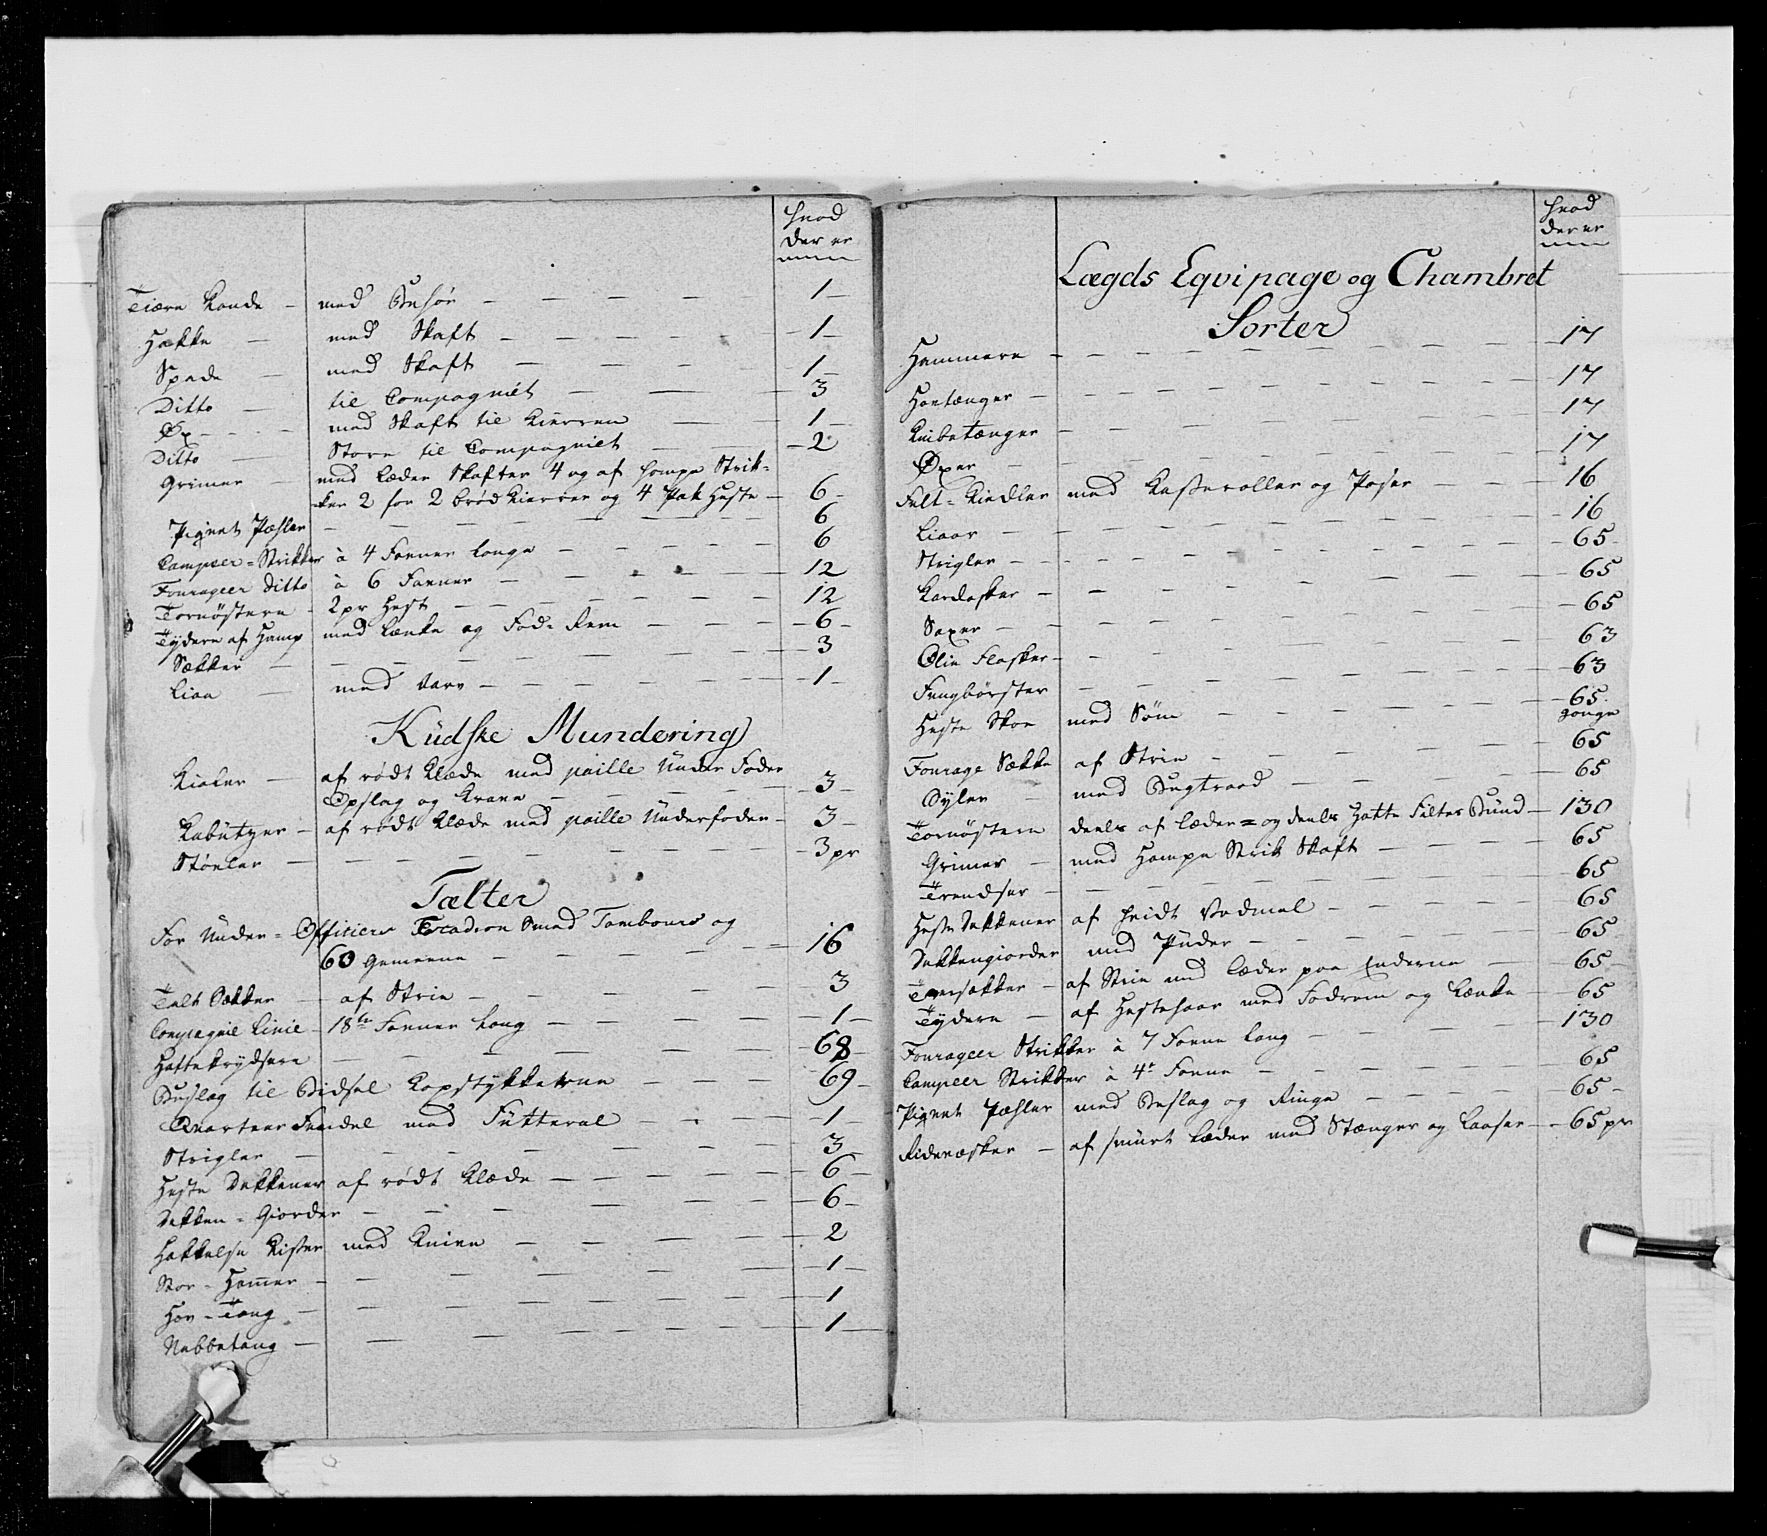 hvad
der er
Tiære Kande – med Behør – 1 –
Hakke – med Skaft – 1 –
Spade – med Skaft – 1 –
Ditto – til Compagniet – 3
Øx – med Skaft til Kierren – 1 –
Ditto – Store til Compagniet – 2
Grimer – med Læder Skafter 4 og af Hampe Strik-
ker 2 for 2 brød Kierrer og 4 Pak Heste – 6 –
Piqvet Pæhler – 6
Campeer-Strikker à 4 Favner lange – 6
Fourageer Ditto à 6 Favner – 12
Tornøstere – 2 pr Hest – 12
Tydere af Hamp med Lænke og Fod-Rem – 6 –
Sækker – 3
Liaa – med – 1 –
Kudske Mundering
Kioler – af rødt Klæde med paille Under Foder
Opslag og Krave – 3 –
Kabutzer – af rødt Klæde med paille Underfoder – 3 –
Støvler – 3 pr
Tælter
For Under-Officiers Smed Tambours og
60 Gemeene – 16
Telt Sækker – af Strie – 3
Compagnie Linie – 18 Favner Lang – 1 –
Hattekrydsere – 68 –
Beslag til Bidsel Kopstykkerne – 69 –
Qvarteer Fendel med Futteral – 1 –
Strigler – 3
Heste Dekkener af rødt Klæde – 6 –
Dekken-Giorder – 6 –
Hakkelse Kister med Knive – 2
Stor-Hammer – 1 –
Hov-Tang – 1
Nebbetang – 1
hvad
der er
Lægds Eqvipage og Chambret
Sorter
Hammere – 17
Hovtænger – 17
Knibetænger – 17
Øxer – 17
Felt-Kiedler med Kasseroller og Poser – 16
Liaar – 16
Strigler – 65
Kardasker – 65
Saxer – 65
Olie Flasker – 63
Fengbørster – 63
Heste Skoe med Søm – 65
gange
Fourage Sække af Strie – 65
Syler – med Begtraad – 65
Tornøstere deels af Læder = og deels Hatte Filtes Bund – 130
Grimer – med Hampe Strik Skaft – 65
Trendser – 65
Heste Dekkener af hvidt Vadmel – 65
Dekkengiorder med Puder – 65
Tversækker – af Strie med Læder paa Enderne – 65
Tydere – af Hestehaar med Fodrem og Lænke – 65
Fourageer Strikker à 7 Favne Lang – 130
Campeer Strikker à 4 Favne – 65
Piqvet Pæhler med Beslag og Ringe – 65 –
Ridetasker – af smurt Læder med Stænger og Laaser – 65 pr